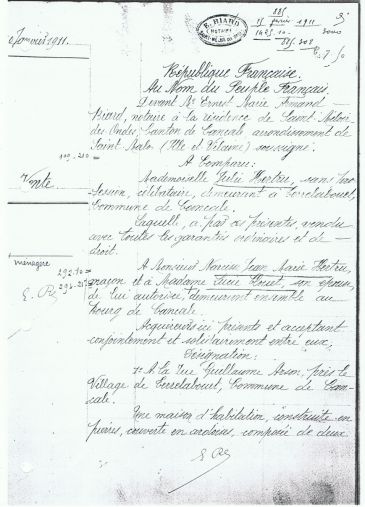 e Janvier 1911.
E. BIARD
NOTAIRE
République Française.
Au Nom du Peuple Français.
Devant Me Ernest Marie Armand
Biard, notaire à la résidence de Saint-Méloir
des Ondes, Canton de Cancale, arrondissement de
Saint-Malo (Ille et Vilaine) soussigné.
A Comparu:
Vente
Mademoiselle Julie Hertru, sans pro-
fession, célibataire, demeurant à Terrelabouet,
Commune de Cancale.
Laquelle a, par ces présentes, vendu
avec toutes les garanties ordinaires et de
droit.
ménagère
A Monsieur Narcisse Jean Marie Hertru,
maçon et à Madame son épouse
de lui autorisée, demeurant ensemble au
bourg de Cancale.
Acquéreurs ici présents et acceptant
conjointement et solidairement entre eux.
Désignation:
1° A la Rue Guillaume près le
Village de Terrelabouet, Commune de Can-
cale.
Une maison d'habitation, construite en
pierres, couverte en ardoises, composée de deux